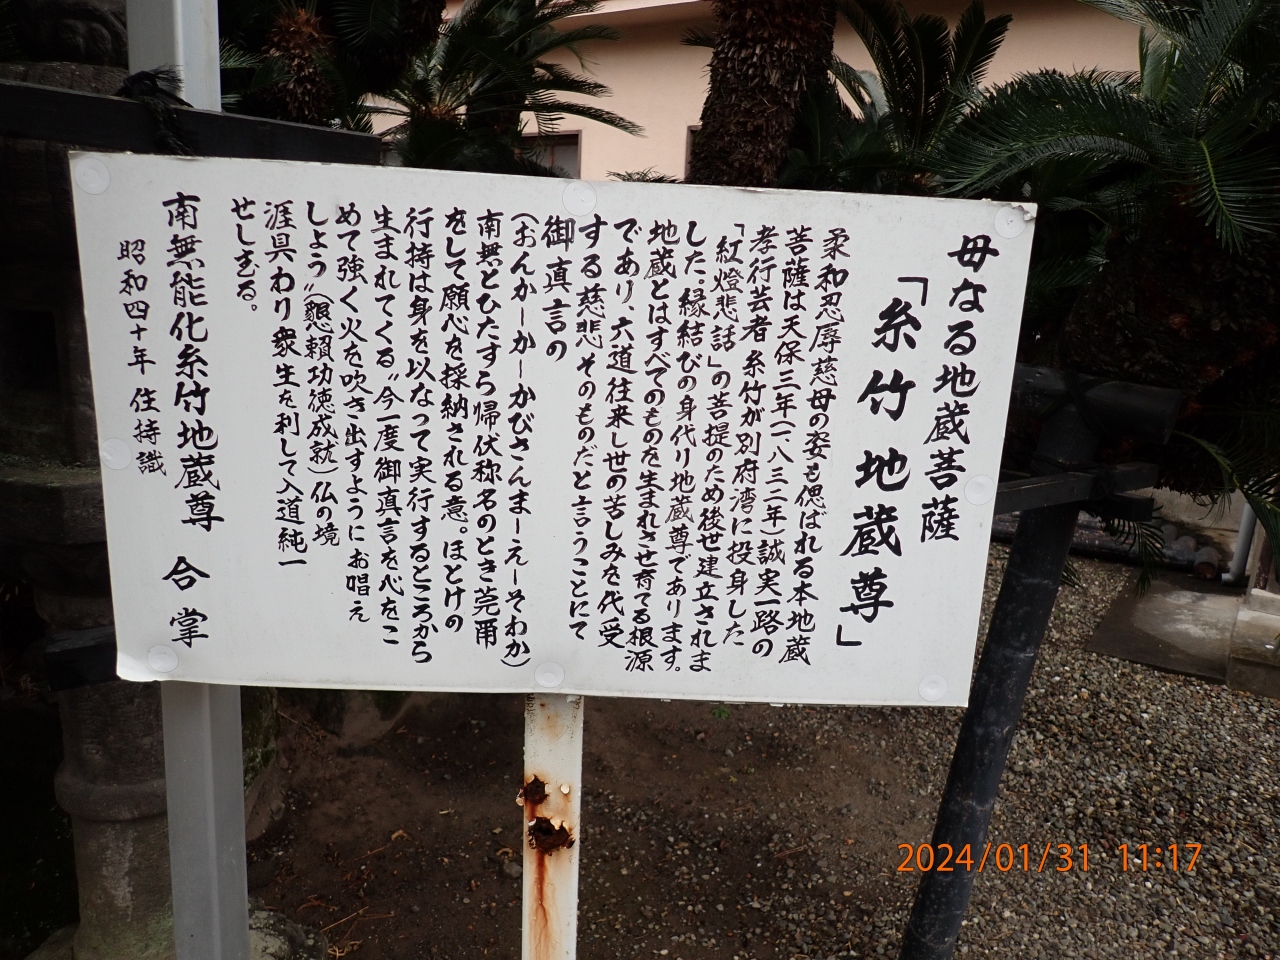 母なる地蔵菩薩
「糸竹地蔵尊」
柔和忍辱慈母の姿も偲ばれる本地蔵
菩薩は天保三年(一八三二年)誠実一路の
孝行芸者糸竹が別府湾に投身した
「紅燈悲話」の菩提のため後世建立されま
した。縁結びの身代り地蔵尊であります。
地蔵とはすべてのものを生まれさせ育てる根源
であり、六道往来し世の苦しみを代受
する慈悲そのものだと言うことにて
御真言の
(おんかーかーかびさんまーえーそわか)
南無とひたすら帰伏称名のとき莞爾
をして願心を採納される意。ほとけの
行持は身を以なって実行するところから
生まれてくる〝今一度御真言を心をこ
めて強く火を吹き出すようにお唱え
しよう〟(懇頼功徳成就)仏の境
涯具わり衆生を利して入道純一
せしむる。
南無能化糸竹地蔵尊 合掌
昭和四十年 住持識
2024/01/31 11:17